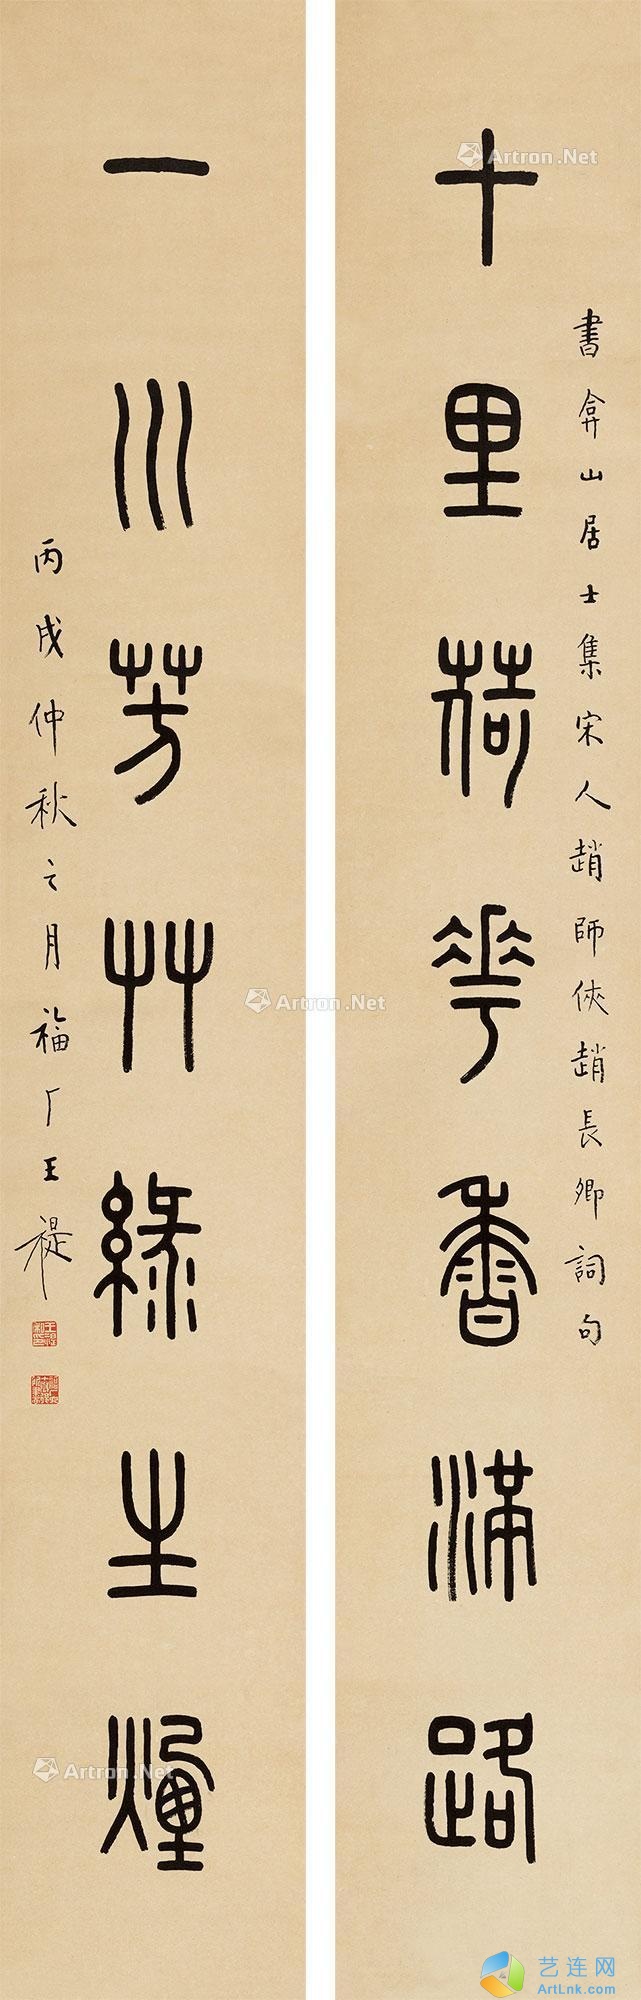 十里荷華香滿路
書弇山居士集宋人趙師俠趙長卿詞句
一川芳艸綠生煙
丙戌仲秋之月福厂王禔
Artron.Net
Artron.Net
Artron.Net
艺连网
ArtLnk.com